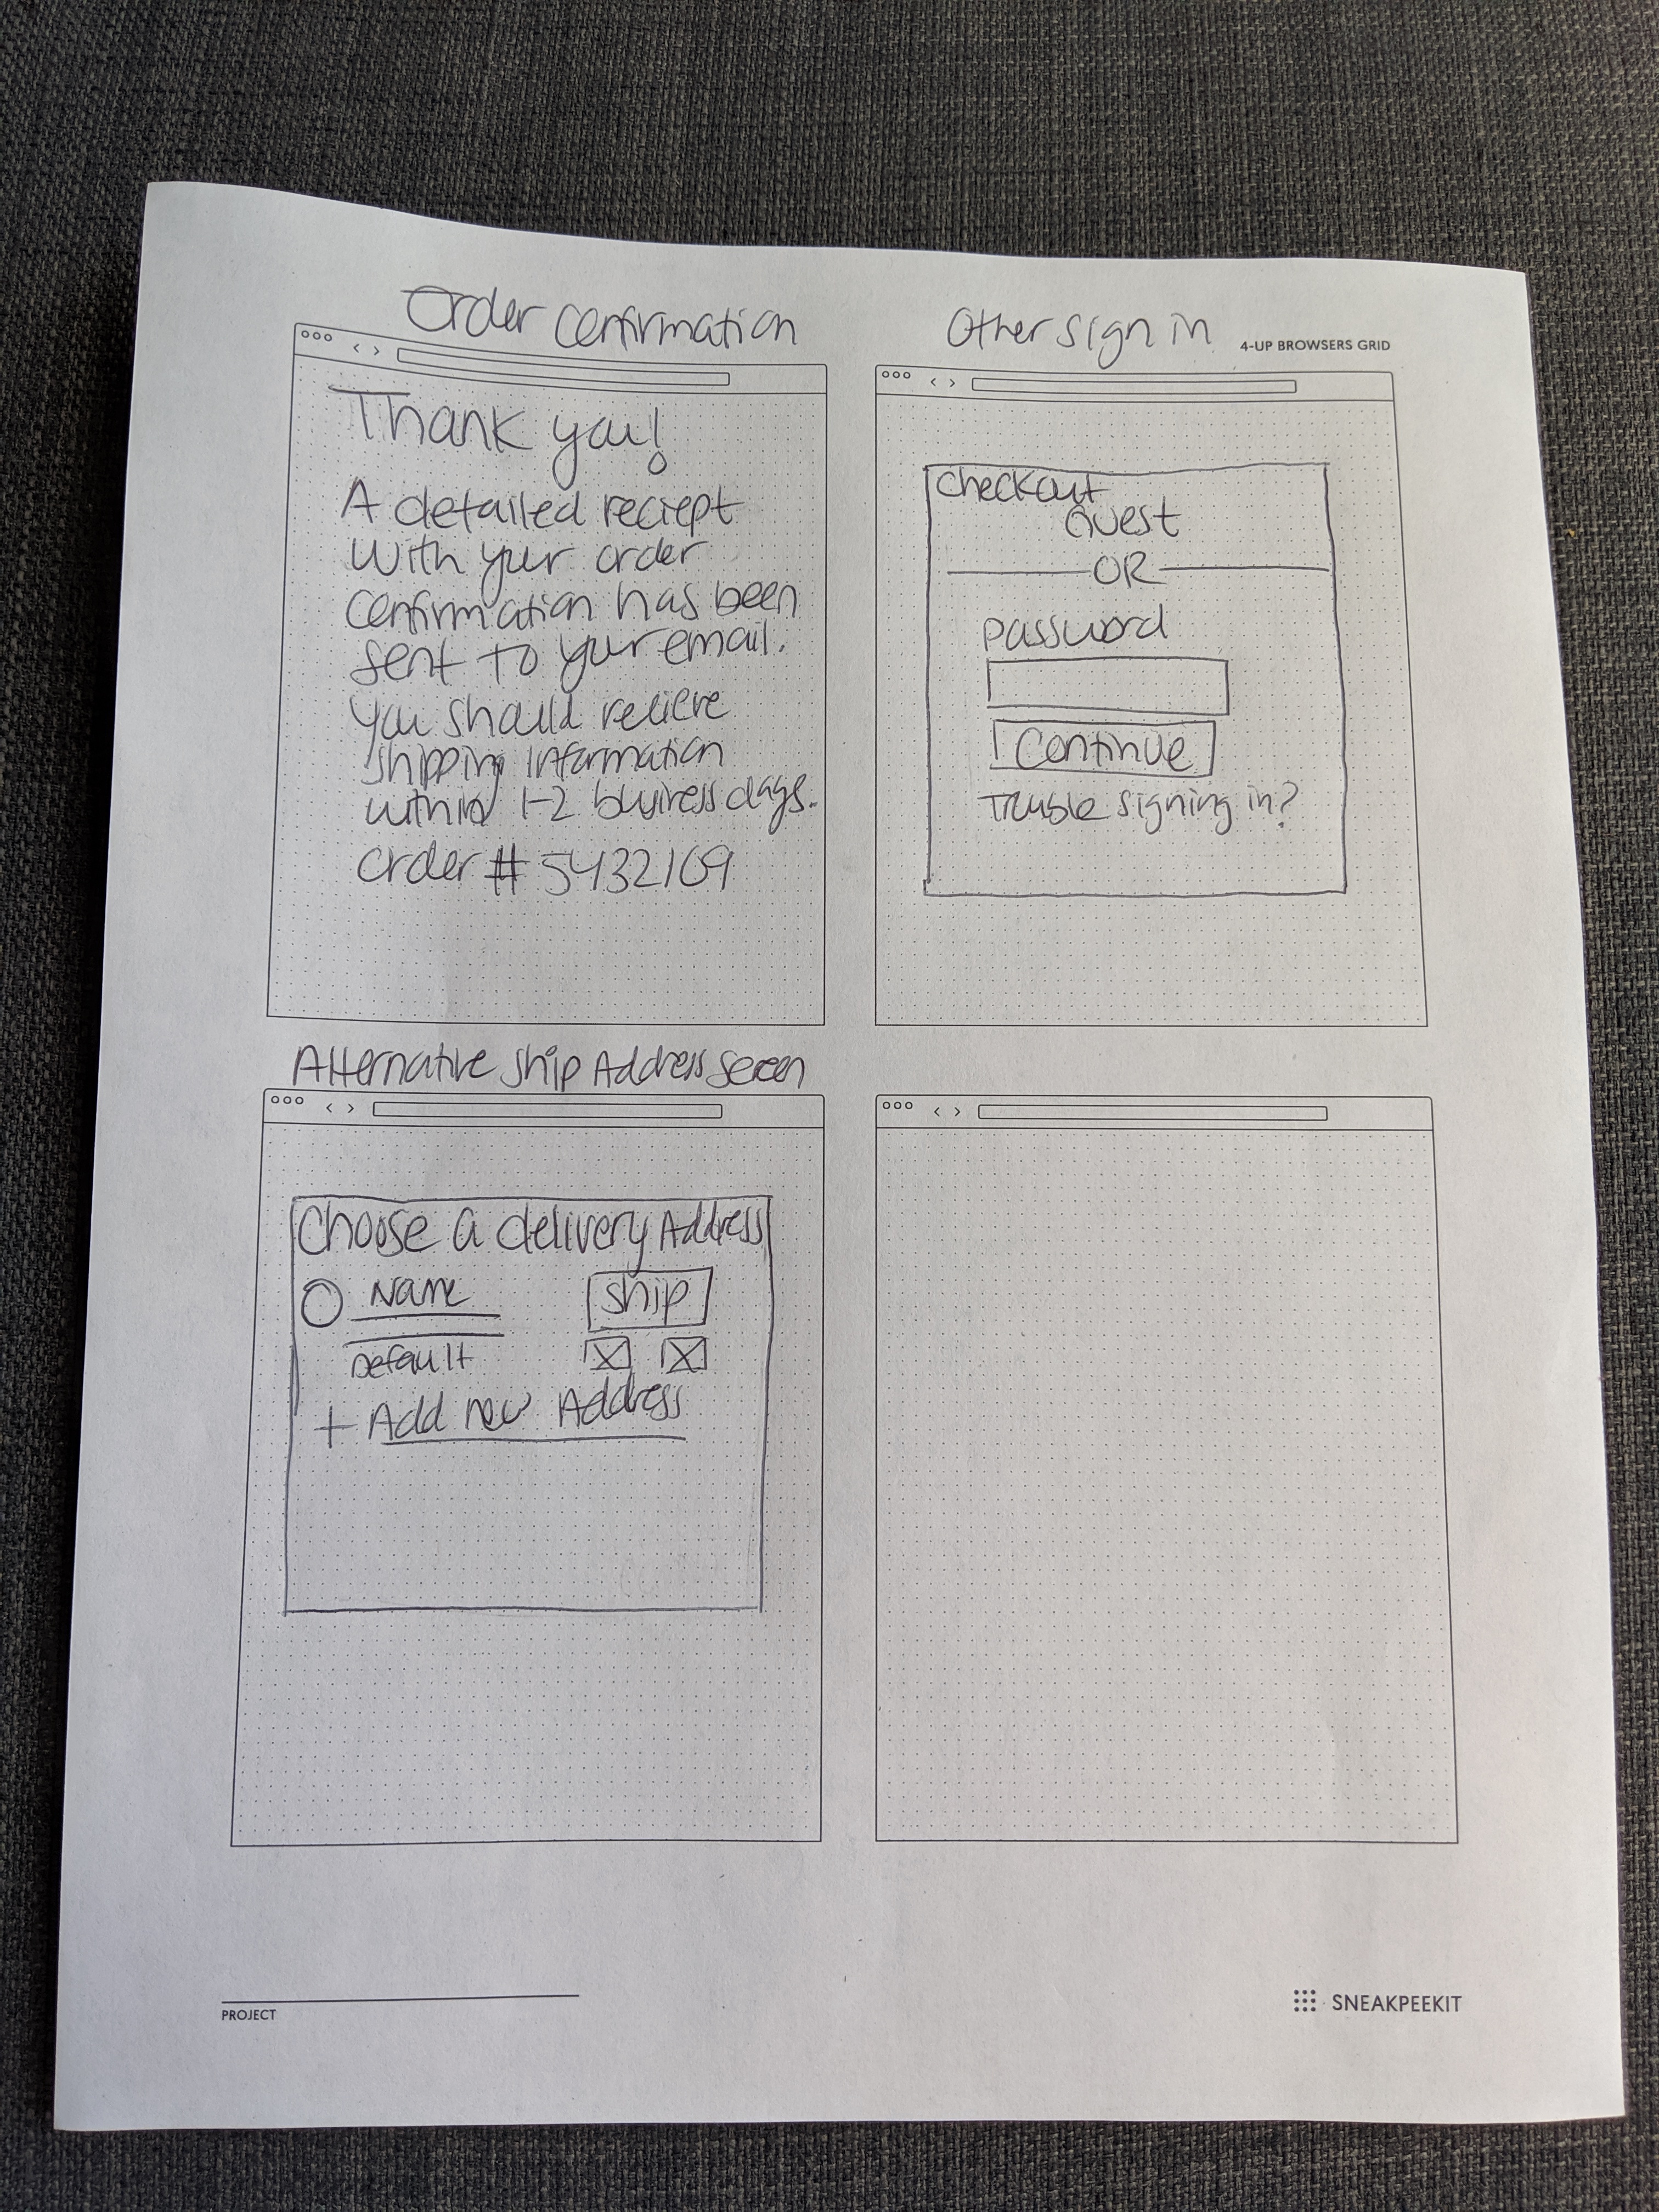 Order Confirmation
Thank you!
A detailed reciept
with your order
confirmation has been
sent to your email.
You should recieve
shipping information
within 1-2 business days.
Order # 5432109
Other sign in
4-UP BROWSERS GRID
Checkout
Guest
OR
Password
Continue
Trouble signing in?
Alternative Ship Address Screen
Choose a delivery Address
Name
Ship
Default
+ Add new Address
PROJECT
SNEAKPEEKIT